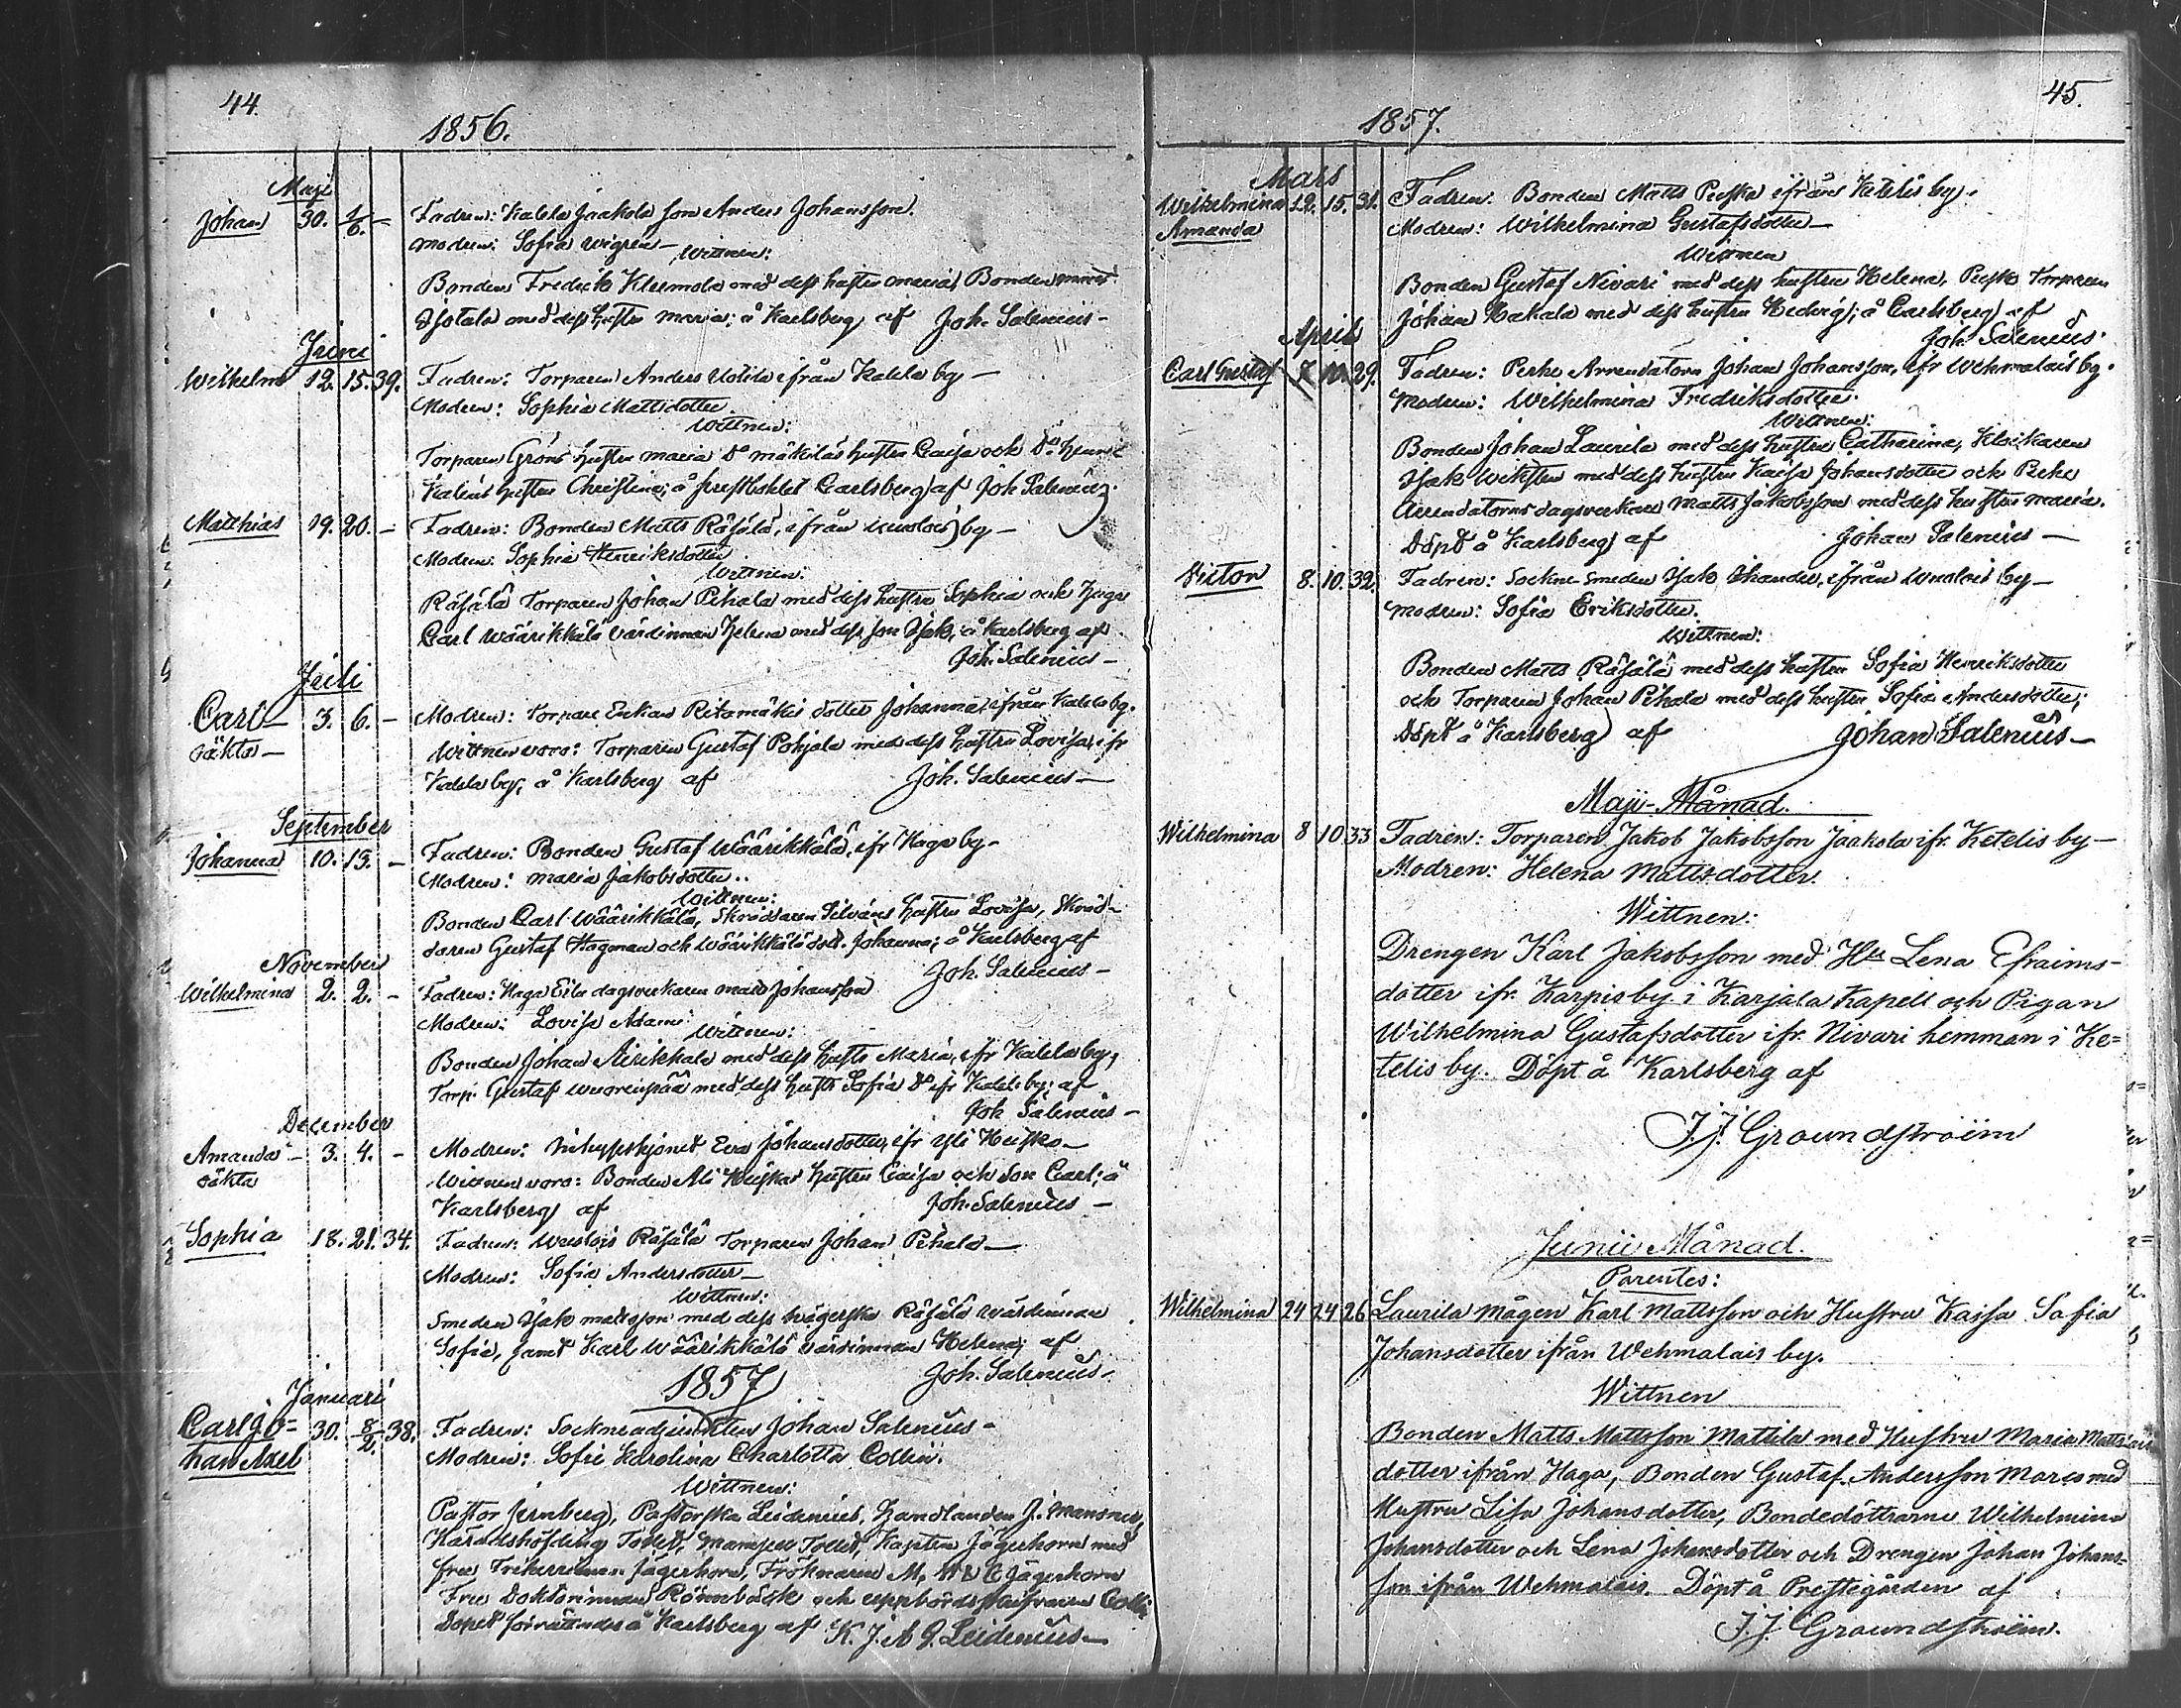 44.
1856.
Maji
Johan 30. 1/6. — Fadren: Kalela Jaakola son Anders Johansson.
Modren: Sofia Wigren —
Wittnen:
Bonden Fredrik Kleemola med dess hustru Maria, Bonden
Isotalo med dess hustru Maria; å Karlsberg af Joh. Salenius —
Junii
Wilhelm 12. 15. 39. Fadren: Torparen Anders Uotila ifrån Kalela by —
Modren: Sophia Mattsdotter
Wittnen:
Torparen Gröns hustru Maria Do Mäkiläs hustru Caisa och Do
hustru Christina; å Carlsberg af Joh Salenius.
Matthias 19. 20. — Fadren: Bonden Matts Räfälä, ifrån by —
Modren: Sophia Henriksdotter.
Wittnen:
Räfälä Torparen Johan Pihala med dess hustru Sophia och
Carl Wäärikkälä värdinnan Helena med dess son Isak, å Karlsberg af
Joh. Salenius —
Juli
Carl — 3. 6. — Modren: Torpare Enkan Ritamäkis dotter Johanna, ifrån Kalela by.
oäkta —
Wittnen voro: Torparen Gustaf Pohjala med dess hustru Lovisa, ifr
Kalela by, å Karlsberg af Joh. Salenius —
September
Johanna 10. 13. — Fadren: Bonden Gustaf Wäärikkälä, ifr Haga by —
Modren: Maria Jakobsdotter..
Wittnen:
Bonden Carl Wäärikkälä, Skräddaren Silväns hustru Lovisa, Skräd-
daren Gustaf Hagman och Wäärikkälä dott. Johanna; å Karlsberg af
Joh. Salenius —
November
Wilhelmina 2. 2. — Fadren: Haga Eila dagsverkaren Johansson
Modren: Lovisa Adami
Wittnen:
Bonden Johan Airikkala med dess hustr Maria, ifr Kalela by,
Torp. Gustaf Wuorenpää med dess hustr Sofia Do ifr Kalela by; af
Joh Salenius —
December
Amanda — 3. 4. — Modren: Inhyseshjonet Eva Johansdotter, ifr Yli Heusko —
oäkta
Wittnen voro: Bonden Ali Heuskas hustru Caisa och son Carl; å
Karlsberg af Joh. Salenius —
Sophia 18. 21. 34. Fadren: Räfälä Torparen Johan Pihala —
Modren: Sofia Andersdotter —
Wittnen:
Smeden Isak Mattsson med dess svägerska Räfälä värdinnan
Sofia, samt Karl Wäärikkälä värdinnan Helena; af
Joh. Salenius.
1857
Januari
Carl Jo= 30. 8/2. 38. Fadren: Sockneadjunkten Johan Salenius —
han Axel
Modren: Sofie Karolina Charlotta Collin.
Wittnen:
Pastor Jernberg, Pastorskan Leidenius, Handlanden J.
Häradshöfding Tollet, Mamsell Tollet, Kapten Jägerhorn med
fru Friherrinnan Jägerhorn, Fröknarna M, Jägerhorn
Fru Doktorinnan Rönnbäck och uppbördsskrifvaren Collin
Döpet förrättades å Karlsberg af K. J. A G. Leidenius —
45.
1857.
Mars
Wilhelmina 12. 15. 31. Fadren: Bonden Matts Peska ifrån Ketelis by.
Amanda
Modren: Wilhelmina Gustafsdotter —
Wittnen
Bonden Gustaf Nivari med dess hustru Helena, Peska Torparen
Johan Hakala med dess hustru Hedvig; å Carlsberg af
Joh Salenius.
April
Carl Gustaf 7 10. 29. Fadren: Perke Arrendatorn Johan Johansson, ifr Wehmalais by.
Modren: Wilhelmina Fredriksdotter.
Wittnen:
Bonden Johan Laurila med dess hustru Catharina, Klockaren
Isak Wiksten med dess hustru Kaisa Johansdotter och Perke
Arrendatorns dagsverkare Matts Jakobsson med dess hustru Maria.
Döpt å Karlsberg af Johan Salenius —
Victor 8. 10. 32. Fadren: Sockne Smeden Isak Thander, ifrån by —
Modren: Sofia Eriksdotter.
Wittnen:
Bonden Matts Räfälä med dess hustru Sofia Henriksdotter
och Torparen Johan Pihala med dess hustru Sofia Andersdotter;
Döpt å Karlsberg af Johan Salenius —
Maji-Månad.
Wilhelmina 8 10 33 Fadren: Torparen Jakob Jakobsson Jaakola ifr. Ketelis by —
Modren: Helena Mattsdotter.
Wittnen:
Drengen Karl Jakobsson med Hu Lena Efraims-
dotter ifr. Karpis by i Karjala Kapell och Pigan
Wilhelmina Gustafsdotter ifr. Nivari hemman i Ke=
telis by. Döpt å Karlsberg af
J. J. Groundstroëm
Junii Månad.
Parentes:
Wilhelmina 24 24 26 Laurila mågen Karl Mattsson och Hustru Kaisa Sofia
Johansdotter ifrån Wehmalais by.
Wittnen
Bonden Matts Mattsson Mattila med Hustru Maria Matts-
dotter ifrån Haga, Bonden Gustaf Andersson Marco med
Hustru Lisa Johansdotter, Bondedöttrarne Wilhelmina
Johansdotter och Lena Johansdotter och Drengen Johan Johans-
son ifrån Wehmalais. Döpt å Prestegården af
J. J. Groundstroëm.